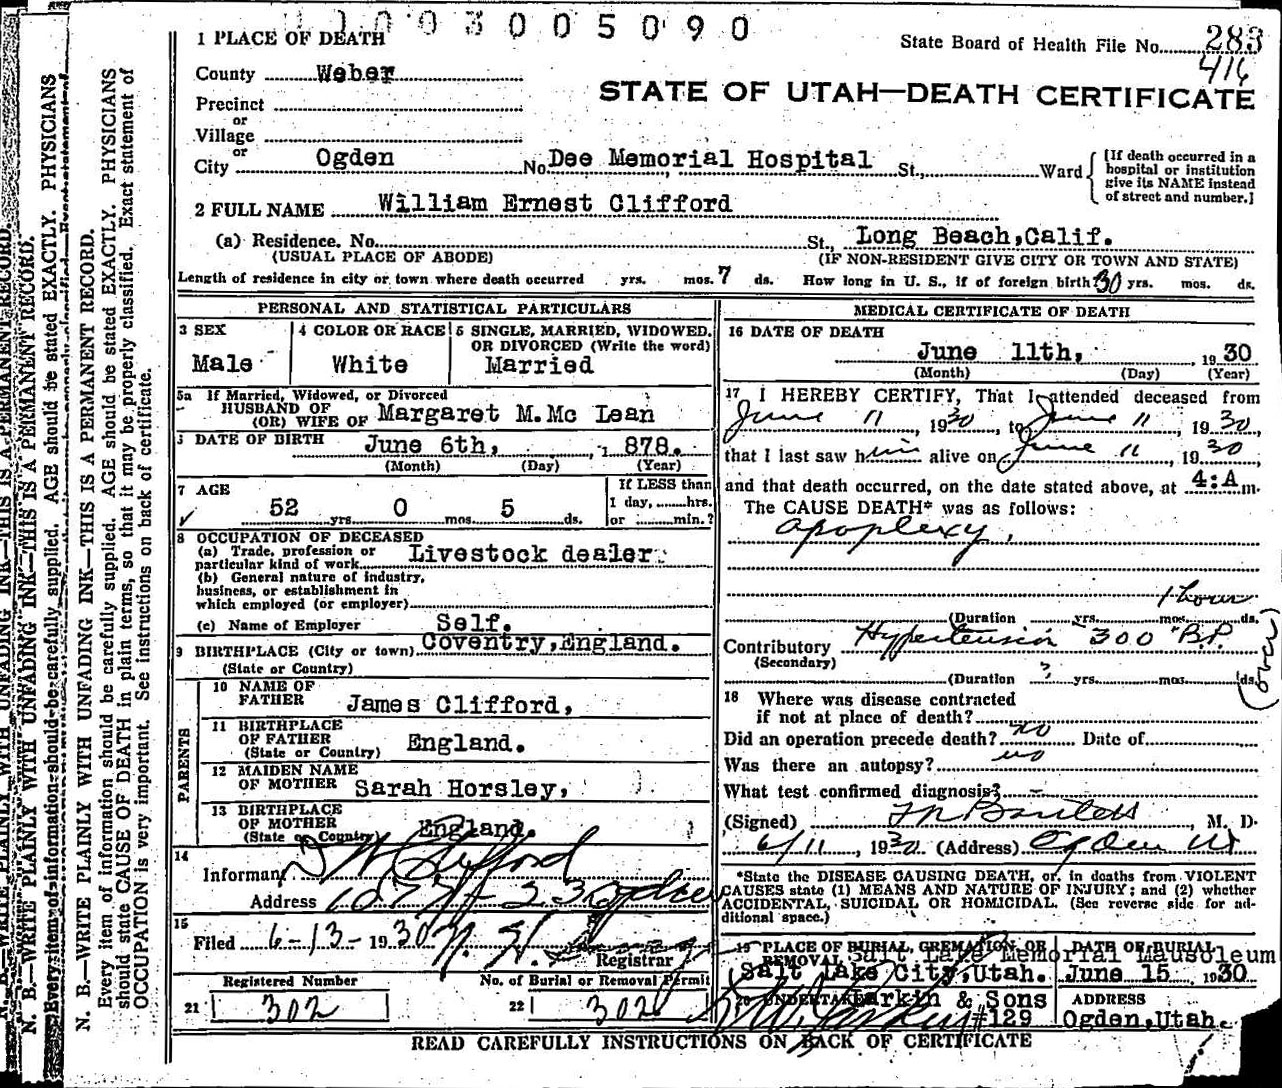 1003005090
State Board of Health File No. 283
416
1 PLACE OF DEATH
County Weber
STATE OF UTAH—DEATH CERTIFICATE
Precinct
or
Village
or
City Ogden No. Dee Memorial Hospital St., Ward
[If death occurred in a hospital or institution give its NAME instead of street and number.]
2 FULL NAME William Ernest Clifford
(a) Residence. No. St., Long Beach, Calif.
(USUAL PLACE OF ABODE) (IF NON-RESIDENT GIVE CITY OR TOWN AND STATE)
Length of residence in city or town where death occurred yrs. mos. 7 ds. How long in U. S., if of foreign birth? 30 yrs. mos. ds.
PERSONAL AND STATISTICAL PARTICULARS
3 SEX 4 COLOR OR RACE 5 SINGLE, MARRIED, WIDOWED,
OR DIVORCED (Write the word)
Male White Married
5a If Married, Widowed, or Divorced
HUSBAND OF
(OR) WIFE OF Margaret M. Mc Lean
DATE OF BIRTH June 6th, 1878.
(Month) (Day) (Year)
7 AGE If LESS than
1 day, hrs.
52 yrs. 0 mos. 5 ds. or min.?
8 OCCUPATION OF DECEASED
(a) Trade, profession or
particular kind of work Livestock dealer
(b) General nature of industry,
business, or establishment in
which employed (or employer)
(c) Name of Employer Self.
9 BIRTHPLACE (City or town) Coventry, England.
(State or Country)
PARENTS
10 NAME OF
FATHER James Clifford,
11 BIRTHPLACE
OF FATHER England.
(State or Country)
12 MAIDEN NAME
OF MOTHER Sarah Horsley,
13 BIRTHPLACE
OF MOTHER England.
(State or Country)
14
Informant W Clifford
Address
15
Filed 6-13-1930
Registrar
Registered Number No. of Burial or Removal Permit
21 302 22 302
MEDICAL CERTIFICATE OF DEATH
16 DATE OF DEATH
June 11th, 1930
(Month) (Day) (Year)
17 I HEREBY CERTIFY, That I attended deceased from
June 11, 1930, to June 11, 1930,
that I last saw him alive on June 11, 1930
and that death occurred, on the date stated above, at 4:A m.
The CAUSE DEATH* was as follows:
apoplexy,
1 hour
(Duration yrs. mos. ds.
Contributory Hypertension 300 B.P.
(Secondary)
(Duration ? yrs. mos. ds.
(over)
18 Where was disease contracted
if not at place of death?
Did an operation precede death? no Date of
Was there an autopsy? no
What test confirmed diagnosis? -
(Signed) M. D.
6/11, 1930 (Address) Ogden Ut
*State the DISEASE CAUSING DEATH, or, in deaths from VIOLENT
CAUSES state (1) MEANS AND NATURE OF INJURY; and (2) whether
ACCIDENTAL, SUICIDAL OR HOMICIDAL. (See reverse side for ad-
ditional space.)
19 PLACE OF BURIAL, CREMATION, OR DATE OF BURIAL
REMOVAL Salt Lake Memorial Mausoleum
Salt Lake City, Utah. June 15 1930
20 UNDERTAKER Larkin & Sons ADDRESS
#129 Ogden, Utah.
READ CAREFULLY INSTRUCTIONS ON BACK OF CERTIFICATE
N. B.—WRITE PLAINLY WITH UNFADING INK—THIS IS A PERMANENT RECORD.
Every item of information should be carefully supplied. AGE should be stated EXACTLY. PHYSICIANS
should state CAUSE OF DEATH in plain terms, so that it may be properly classified. Exact statement of
OCCUPATION is very important. See instructions on back of certificate.
N. B.—WRITE PLAINLY WITH UNFADING INK—THIS IS A PERMANENT RECORD.
Every item of information should be carefully supplied. AGE should be stated EXACTLY. PHYSICIANS